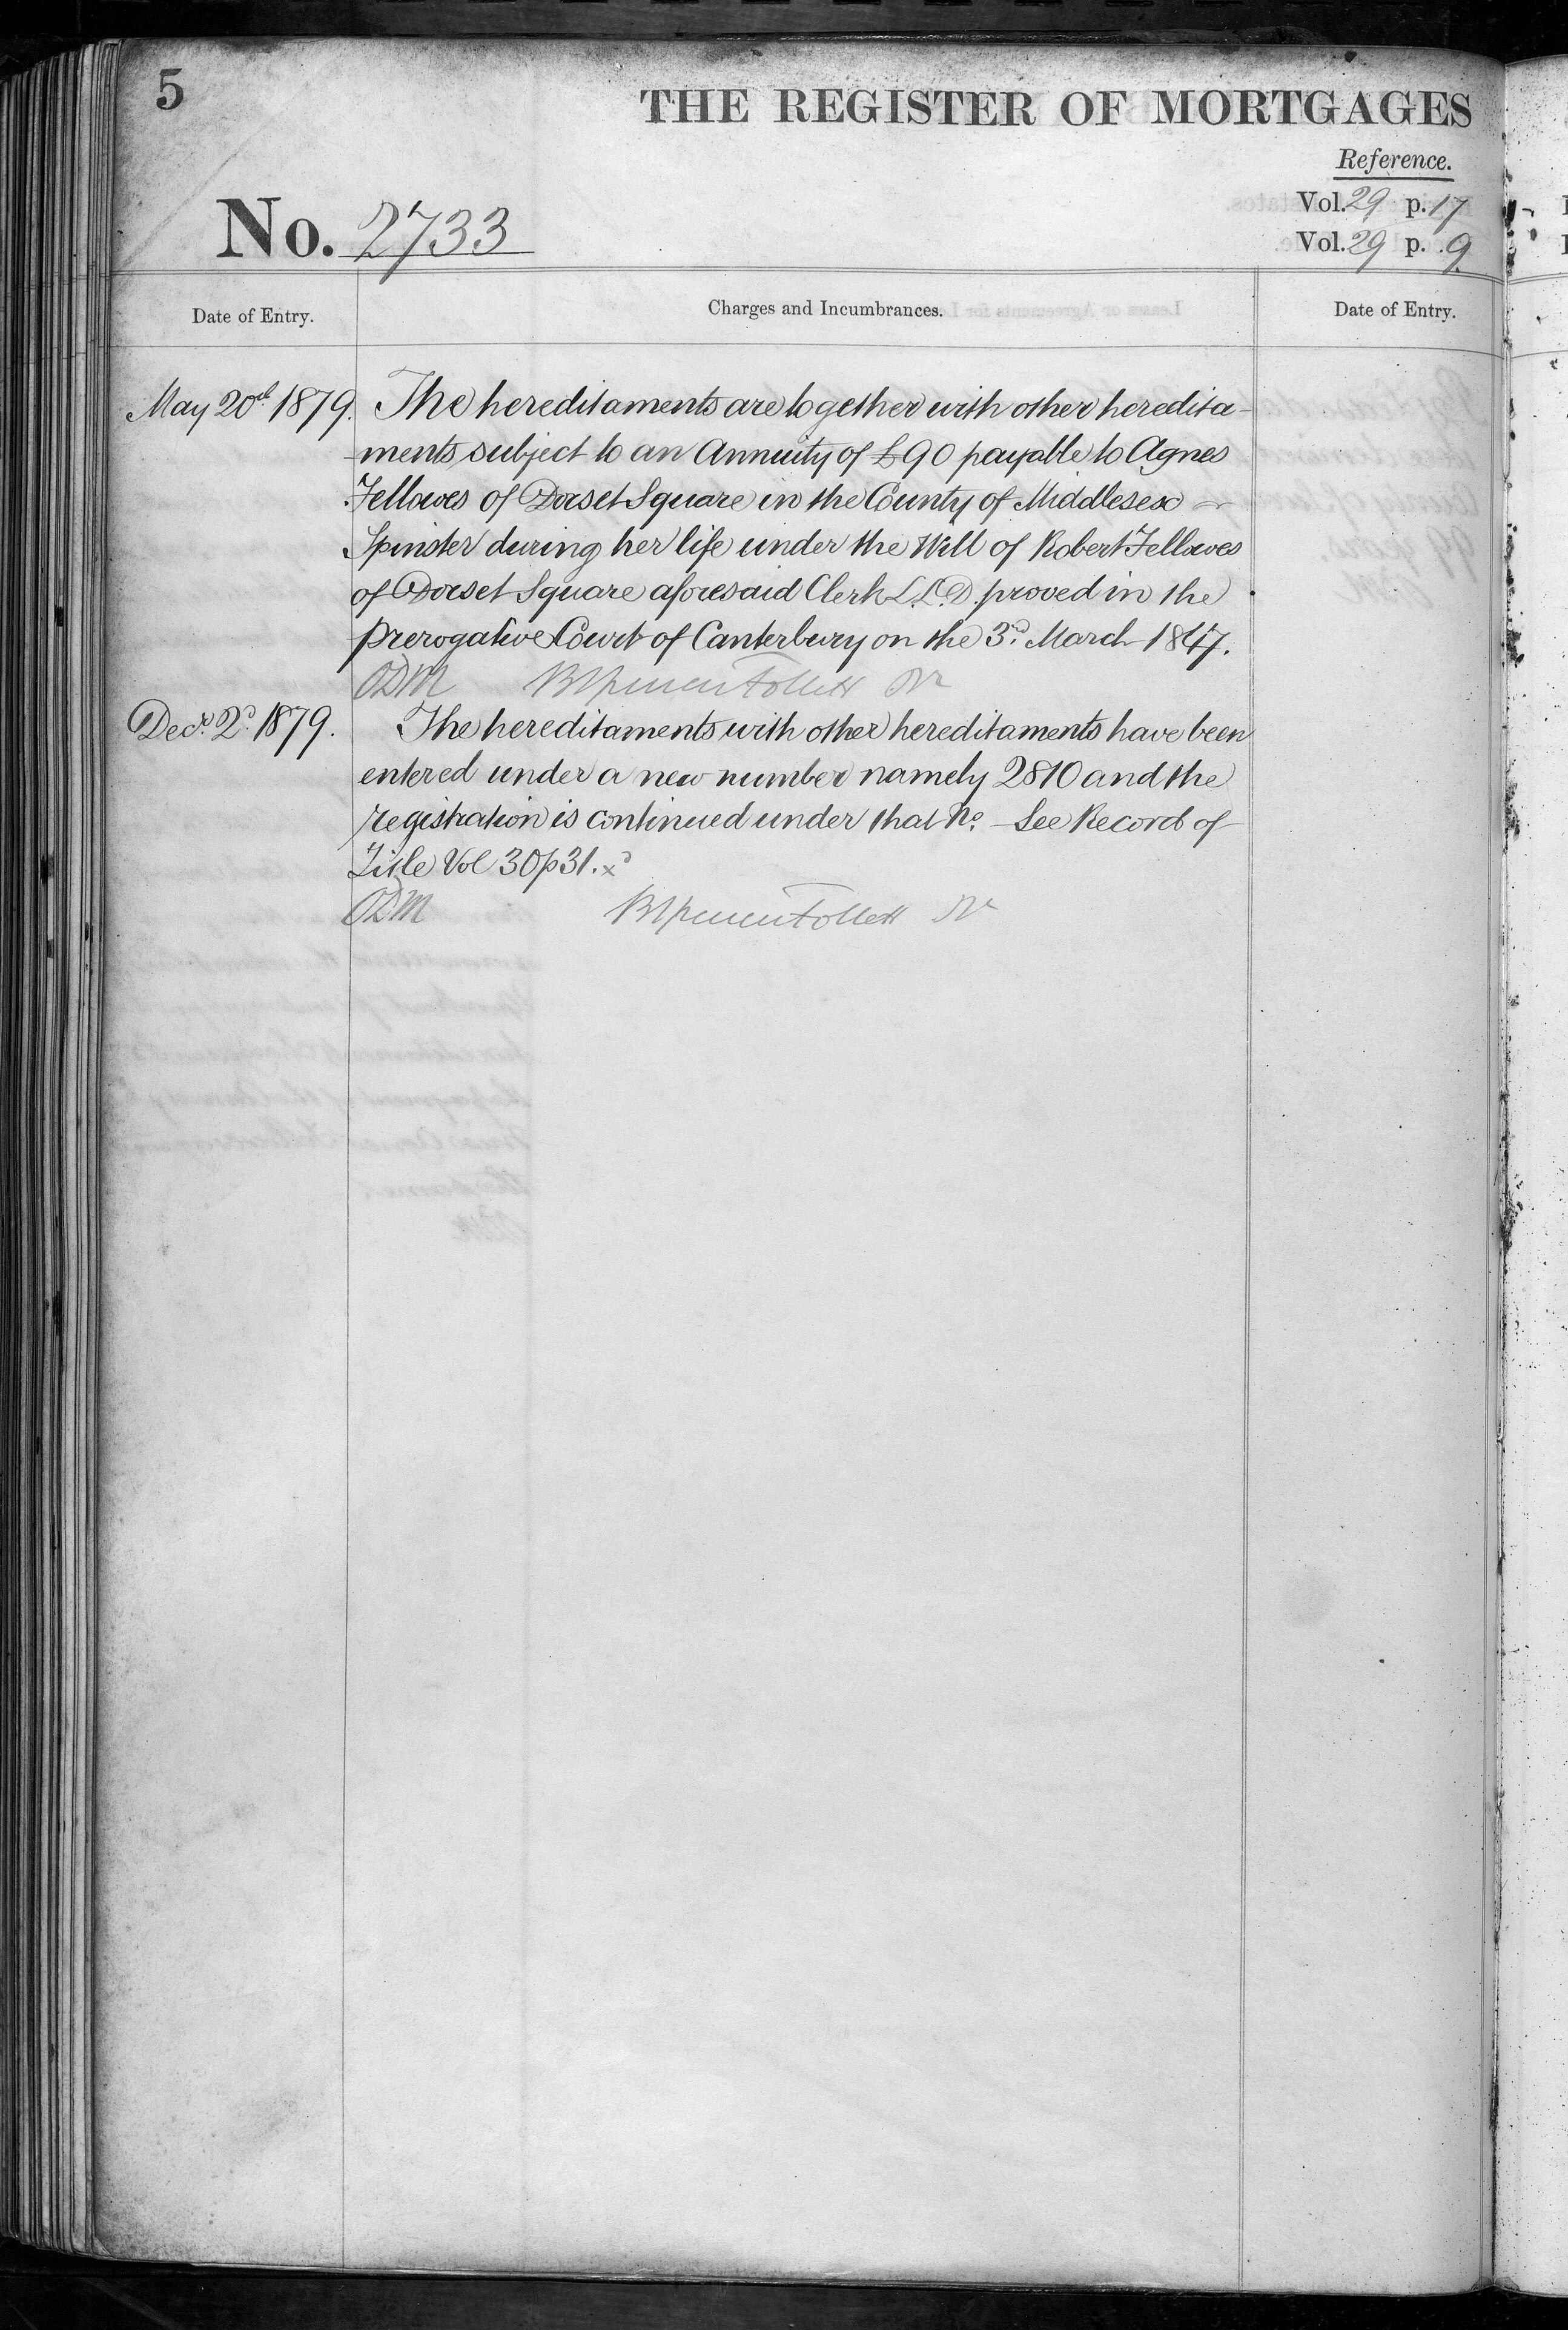 5
THE REGISTER OF MORTGAGES
Reference.
No. 2733
Vol. 29 p. 17
Vol. 29 p. 9.
Date of Entry.
Charges and Incumbrances.
Date of Entry.
May 20th 1879. The hereditaments are together with other heredita-
ments subject to an Annuity of £90 payable to Agnes
Fellowes of Dorset Square in the County of Middlesex
Spinster during her life under the Will of Robert Fellowes
of Dorset Square aforesaid Clerk L.L.D. proved in the
Prerogative Court of Canterbury on the 3d. March 1847.
ODM Follett
Decr. 2d. 1879. The hereditaments with other hereditaments have been
entered under a new number namely 2810 and the
registration is continued under that No. - See Record of
Title Vol 30 p 31.
ODM Follett